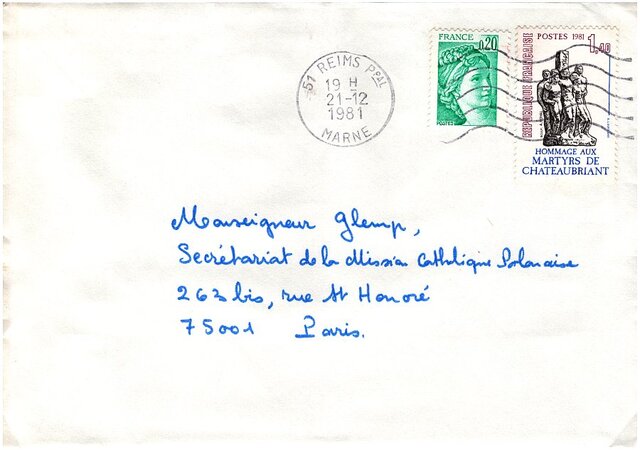 51 REIMS Ppal
19 H
21-12
1981
MARNE
FRANCE
0,20
POSTES
POSTES 1981
1,40
RÉPUBLIQUE FRANÇAISE
HOMMAGE AUX
MARTYRS DE
CHATEAUBRIANT
Monseigneur Glemp,
Secrétariat de la Mission Catholique Polonaise
263 bis, rue St Honoré
75001 Paris.